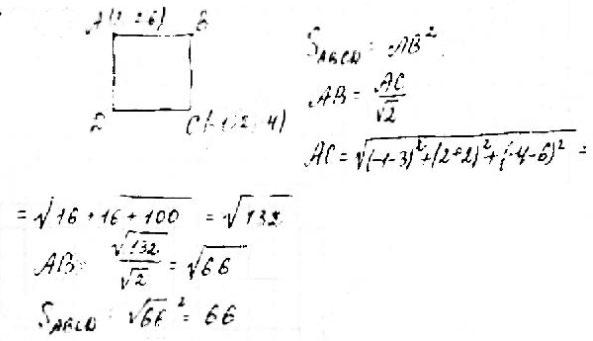 A( ; 6) B
D C(-1; 2; 4)
S_ABCD = AB²
AB = AC/√2
AC = √(-1-3)²+(2+2)²+(-4-6)² =
= √16 + 16 + 100 = √132
AB = √132/√2 = √66
S_ABCD = √66² = 66